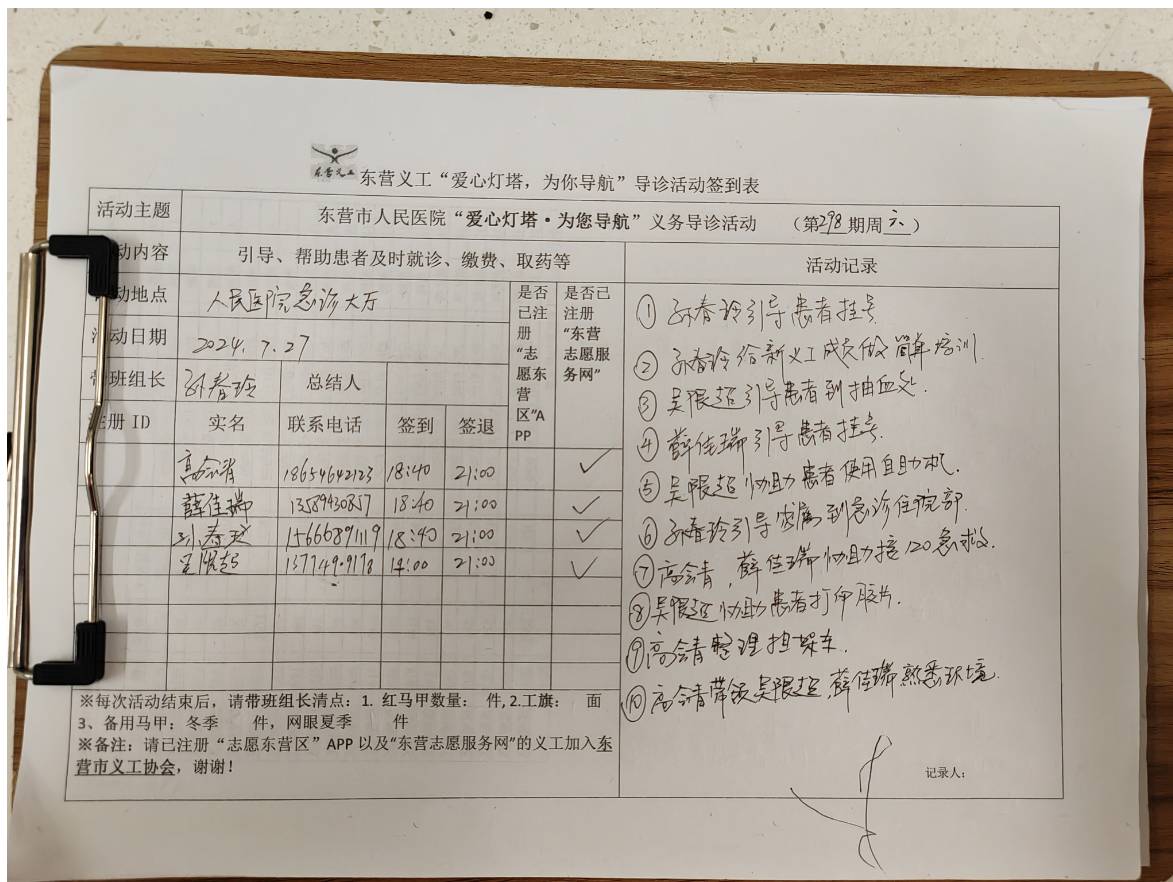 东营义工
东营义工“爱心灯塔，为你导航”导诊活动签到表
活动主题 东营市人民医院“爱心灯�·为您导航”义务导诊活动 （第298期周六）
动内容 引导、帮助患者及时就诊、缴费、取药等 活动记录
动地点 人民医院急诊大厅
是否已注册“志愿东营区”APP
是否已注册“东营志愿服务网”
活动日期 2024.7.27
带班组长 孙春玲 总结人
注册 ID 实名 联系电话 签到 签退
高会清 18654642123 18:40 21:00 ✓
薛佳瑞 13589430857 18:40 21:00 ✓
孙春玲 15666891119 18:40 21:00 ✓
吴限超 21:00 ✓
※每次活动结束后，请带班组长清点：1. 红马甲数量： 件, 2.工旗： 面
3、备用马甲：冬季 件，网眼夏季 件
※备注：请已注册“志愿东营区”APP 以及“东营志愿服务网”的义工加入东
营市义工协会，谢谢！
① 孙春玲引导患者挂号.
② 孙春玲给新义工成员做简单培训.
③ 吴限超引导患者到抽血处.
④ 薛佳瑞引导患者挂号.
⑤ 吴限超协助患者使用自助机.
⑥ 孙春玲引导家属到急诊住院部.
⑦ 高会清，薛佳瑞协助接120急救.
⑧ 吴限超协助患者打印胶片.
⑨ 高会清整理担架车.
⑩ 高会清带领吴限超，薛佳瑞熟悉环境.
记录人：